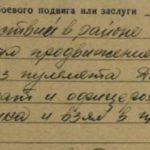 боевого подвига или заслуги
ствий в районе
продвижение
з пулемета
и офицеро
и взял в п